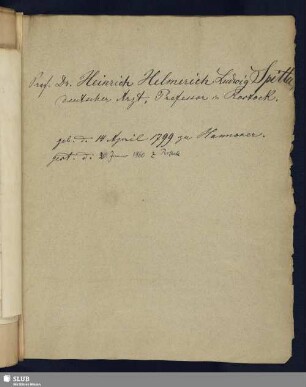 Prof. Dr. Heinrich Helmerich Ludwig Spitta
deutscher Arzt, Professor in Rostock.
geb. d. 14 April 1799 zu Hannover.
gest. d. 1860 z. Rostock
SLUB